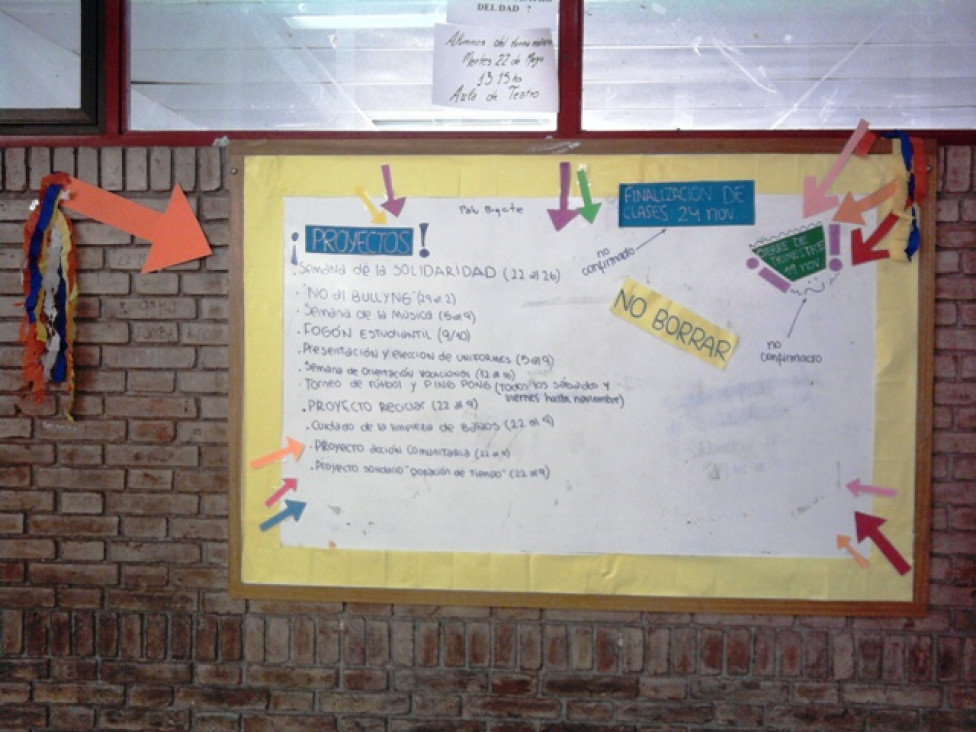 DEL DAD ?
Alumnos del turno
Martes 22 de Mayo
13.15 hs
Aula de Teatro
FINALIZACION DE
CLASES 24 NOV.
no
confirmado
CIERRE DE
TRIMESTRE
19 nov.
no
confirmado
NO BORRAR
¡PROYECTOS!
. Semana de la SOLIDARIDAD (22 al 26)
. "NO al BULLYNG" (29 al 2)
. Semana de la Música (5 al 9)
. FOGÓN ESTUDIANTIL (9/10)
. Presentación y elección de UNIFORMES (5 al 9)
. Semana de Orientación VOCACIONAL (12 al 16)
. Torneo de FÚTBOL y PING PONG (Todos los sábados y
viernes hasta noviembre)
. PROYECTO Reciclar (22 al 9)
. Cuidado de la limpieza de BAÑOS (22 al 9)
. PROYECTO acción comunitaria (22 al 9)
. Proyecto solidario "Donación de Tiempo" (22 al 9)